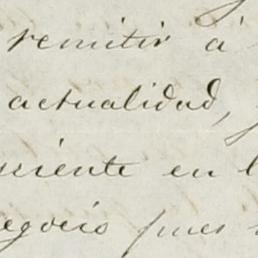 remitir á
actualidad,
rriente en l
egocio pues